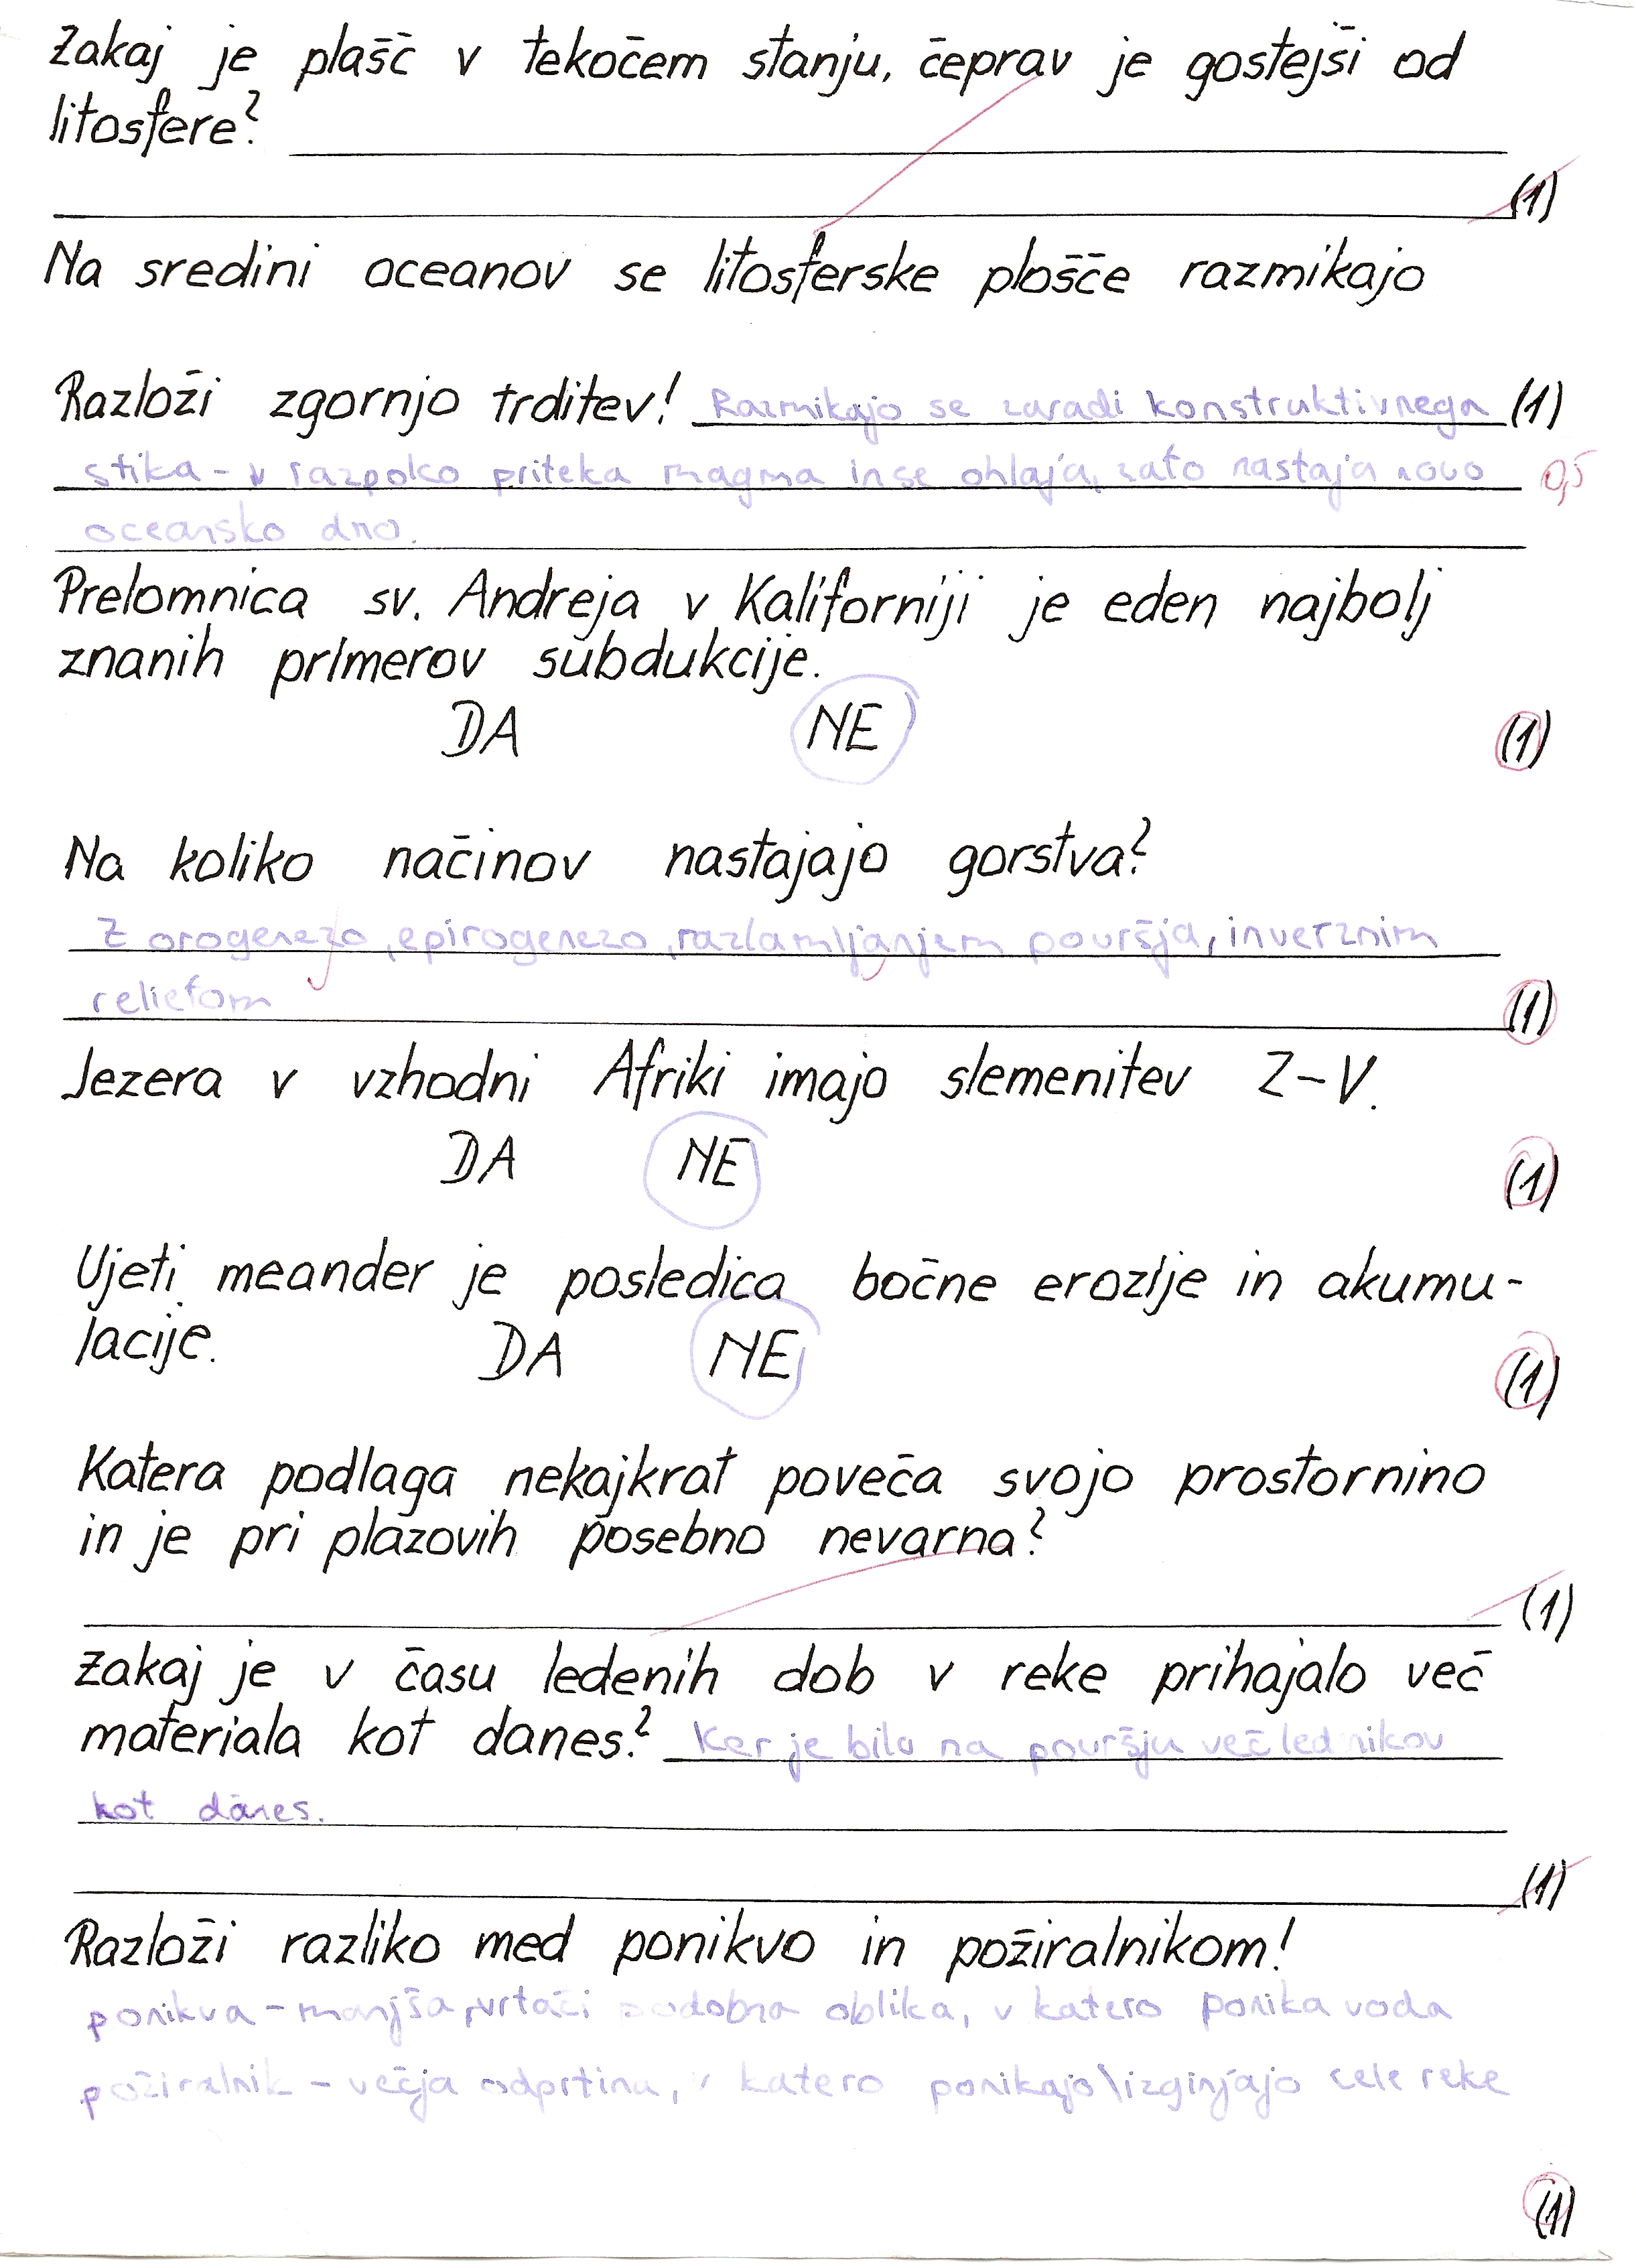 Zakaj je plašč v tekočem stanju, čeprav je gostejši od
litosfere?
(1)
Na sredini oceanov se litosferske plošče razmikajo
Razloži zgornjo trditev! Razmikajo se zaradi konstruktivnega (1)
stika - v razpoko priteka magma in se ohlaja, zato nastaja novo 0,5
oceansko dno.
Prelomnica sv. Andreja v Kaliforniji je eden najbolj
znanih primerov subdukcije.
DA NE (1)
Na koliko načinov nastajajo gorstva?
Z orogenezo, epirogenezo, razlamljanjem površja, inverznim
reliefom (1)
Jezera v vzhodni Afriki imajo slemenitev Z-V.
DA NE (1)
Ujeti meander je posledica bočne erozije in akumu-
lacije. DA NE (1)
Katera podlaga nekajkrat poveča svojo prostornino
in je pri plazovih posebno nevarna?
(1)
Zakaj je v času ledenih dob v reke prihajalo več
materiala kot danes? Ker je bilo na površju več lednikov
kot danes.
(1)
Razloži razliko med ponikvo in požiralnikom!
ponikva - manjša, vrtači podobna oblika, v katero ponika voda
požiralnik - večja odprtina, v katero ponikajo\izginjajo cele reke
(1)